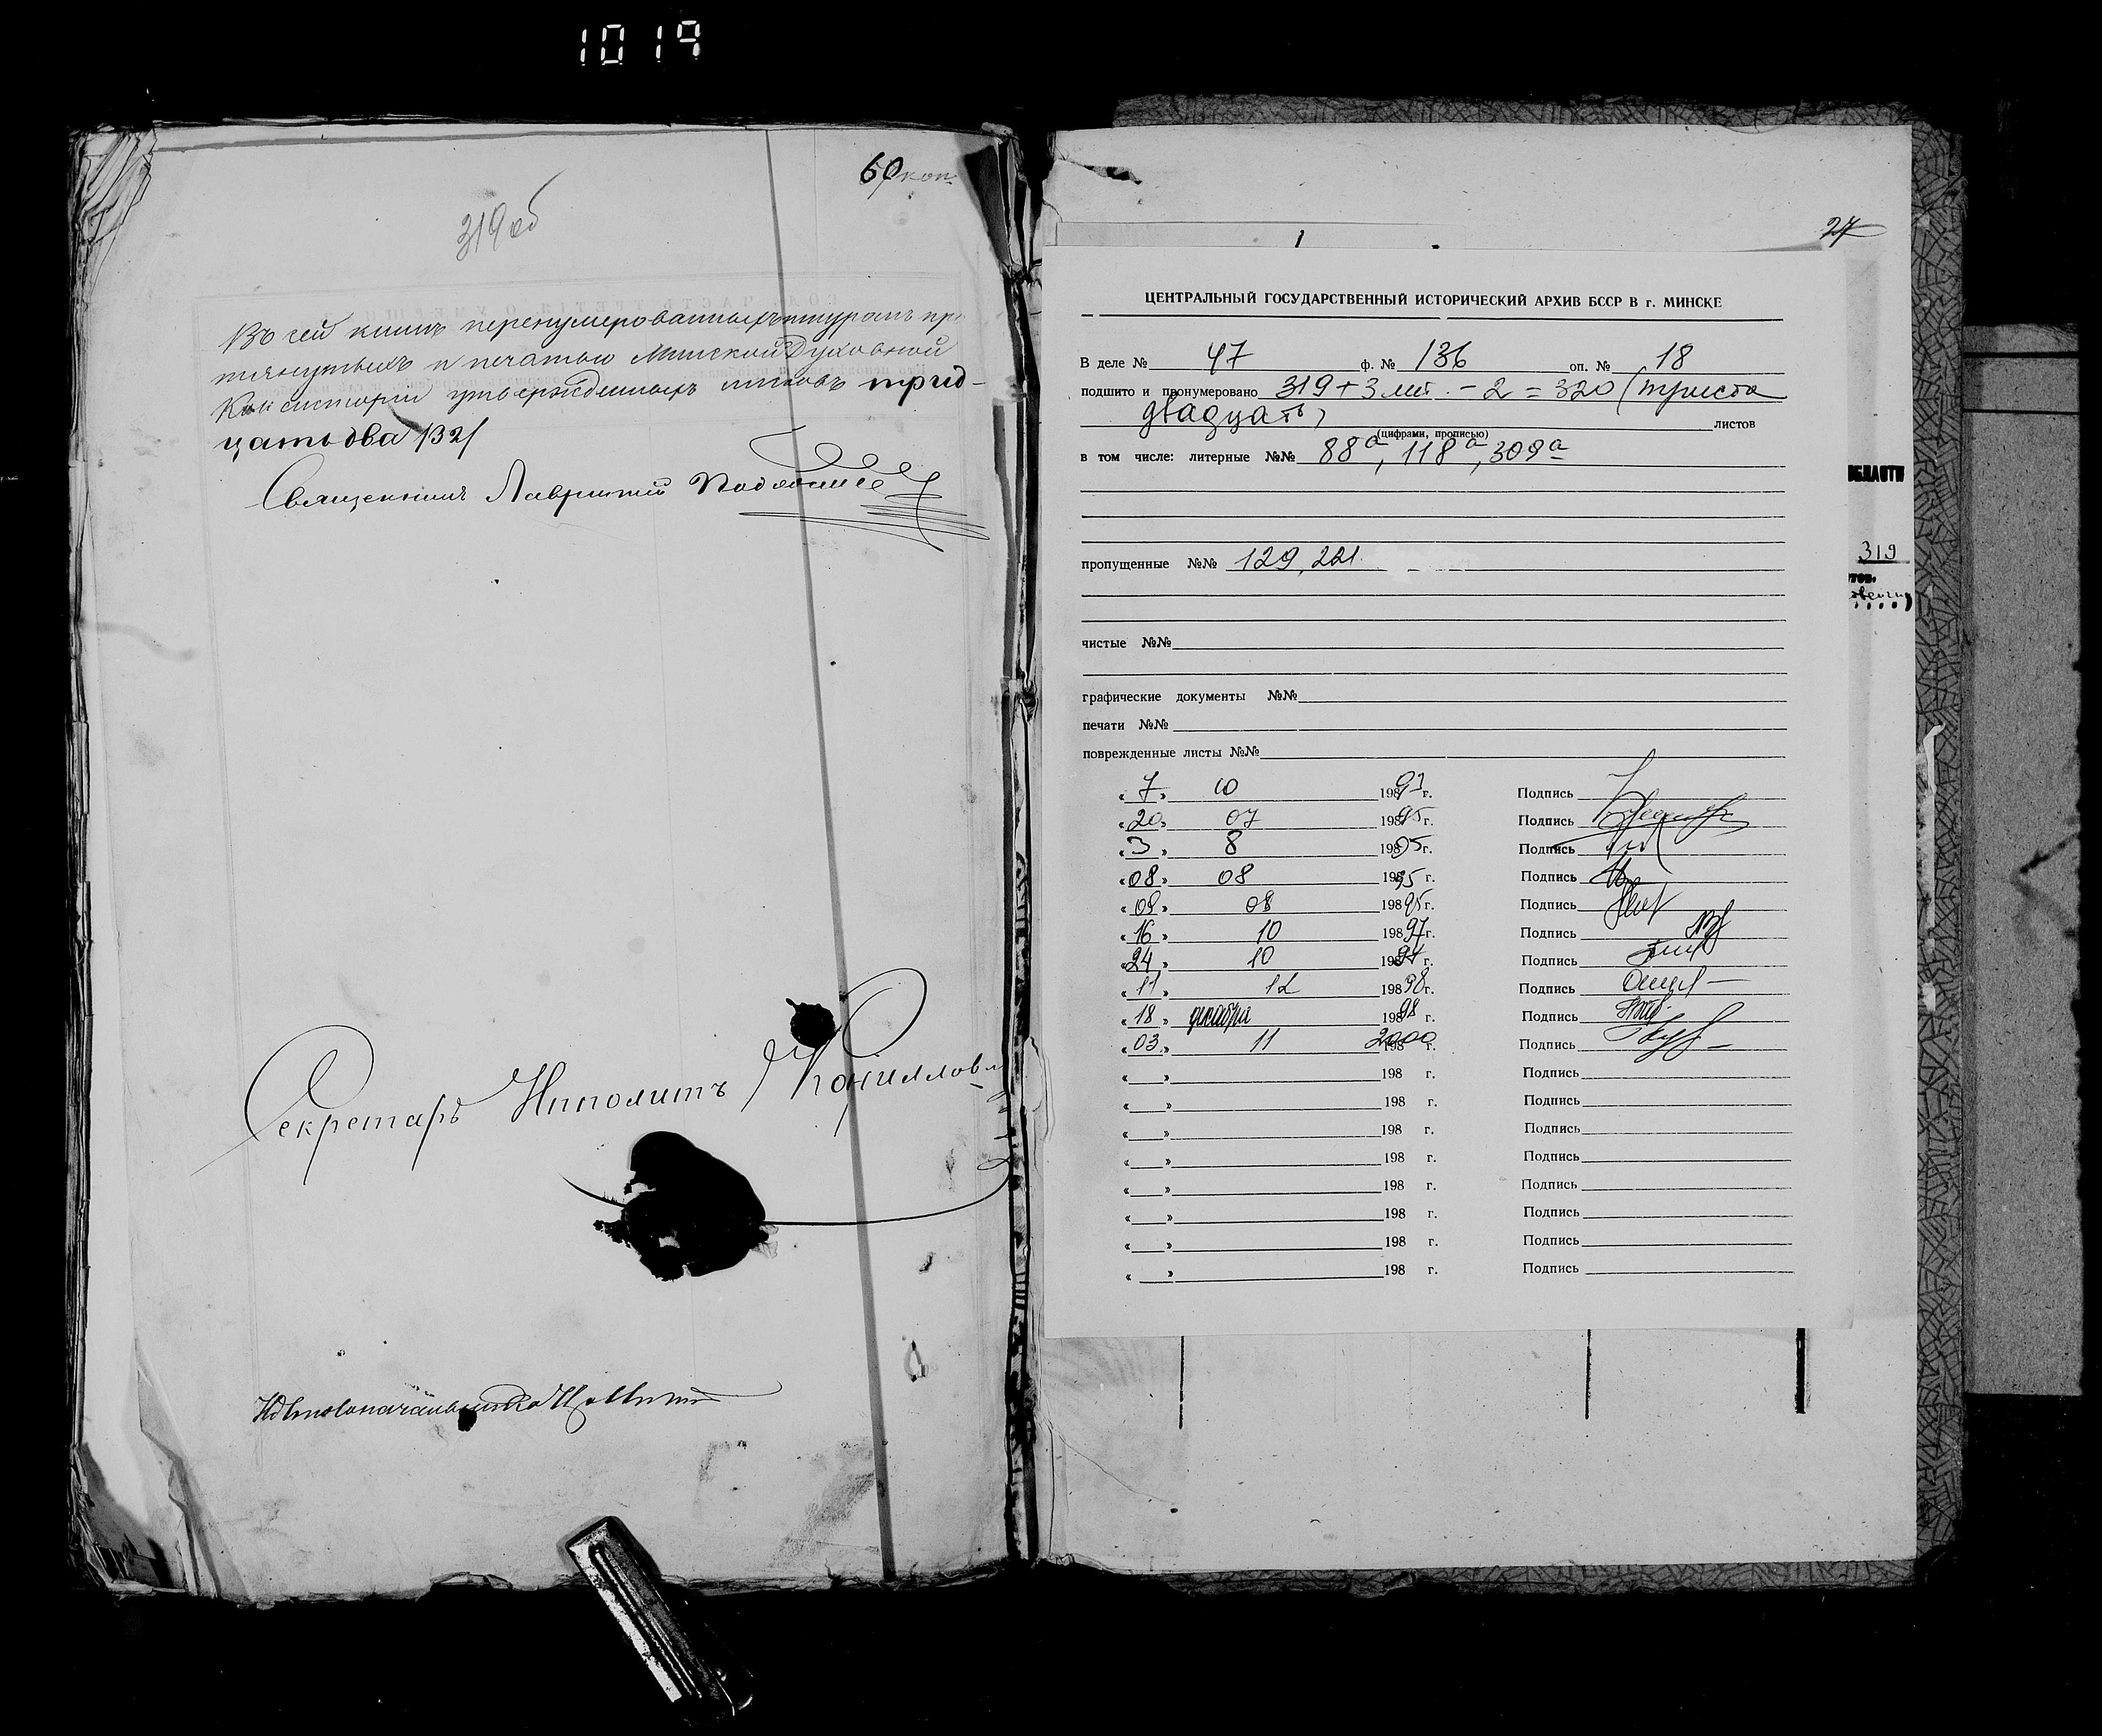 1019
60 коп.
319 об
Въ сей книгѣ перенумерованныхъ шнуромъ про
тянутыхъ и печатью Минской Духовной
Консисторіи утвержденныхъ листовъ трид-
цать два /32/
Священникъ Лаврентій
Секретарь Ипполитъ
27
1
ЦЕНТРАЛЬНЫЙ ГОСУДАРСТВЕННЫЙ ИСТОРИЧЕСКИЙ АРХИВ БССР В г. МИНСКЕ
В деле № 47 ф. № 136 оп. № 18
подшито и пронумеровано 319 + 3 лит. - 2 = 320 (триста
двадцать) листов
(цифрами, прописью)
в том числе: литерные №№ 88а, 118а, 309а
пропущенные №№ 129, 221
чистые №№
графические документы №№
печати №№
поврежденные листы №№
«7» 10 198 93 г. Подпись
«20» 07 198 95 г. Подпись
«3» 8 198 95 г. Подпись
«08» 08 198 95 г. Подпись
«09» 08 198 95 г. Подпись
«16» 10 198 97 г. Подпись
«24» 10 198 97 г. Подпись
«11» 12 198 98 г. Подпись
«18» декабря 198 98 г. Подпись
«03» 11 198 2000 г. Подпись
« » 198 г. Подпись
« » 198 г. Подпись
« » 198 г. Подпись
« » 198 г. Подпись
« » 198 г. Подпись
« » 198 г. Подпись
« » 198 г. Подпись
« » 198 г. Подпись
ОБЛАСТИ
319